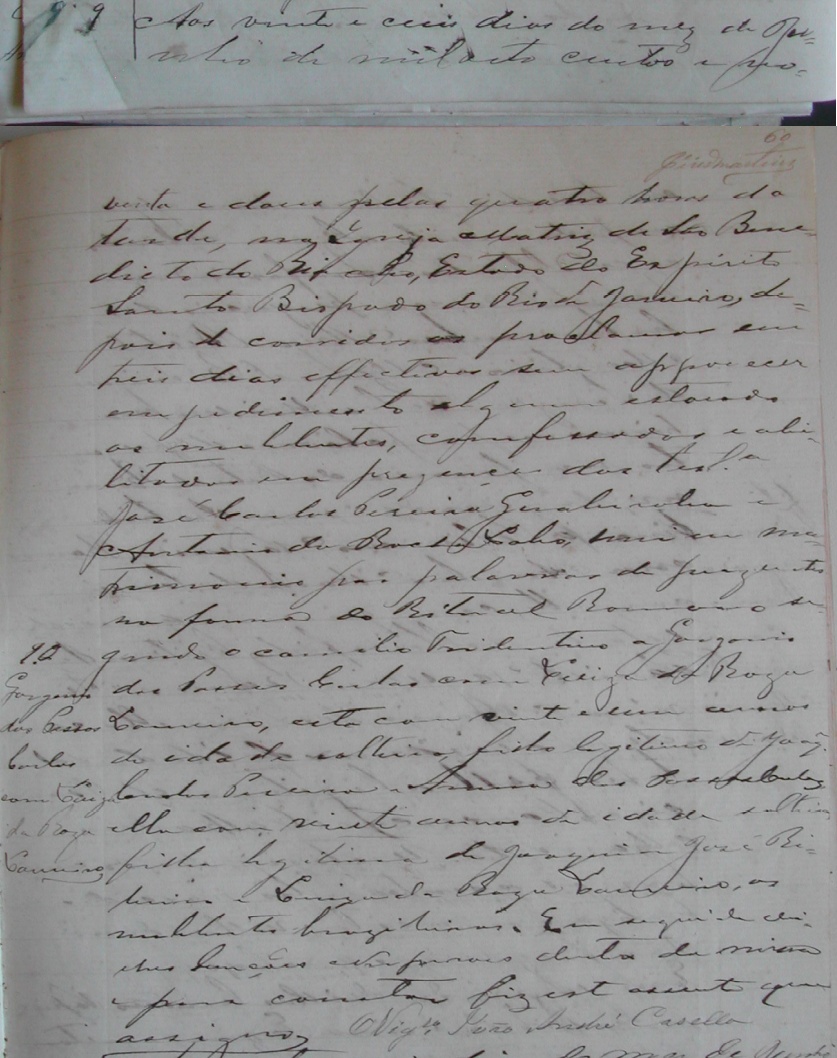 Aos vinte e seis dias do mez de
de mil oito centos e no-
60
venta e dous pelas quatro horas da
tarde, na Igreja Matriz de São Bene-
dicto do Riacho, Estado do Espirito
Santo Bispado do Rio de Janeiro, de-
pois de corridos os proclamas em
treis dias effectivos sem apparecer
empedimento algum estando
os nubbentes, comfessados e abi-
litados em prezença das test.a
José Carlos Pereira e
Antonio da Lobo, uni em ma-
trimonio por palavras de prezente
na forma do Ritual Romano se-
gundo o concilio Tridentino a Gorgonio
dos Passos Carlos com Luiza da Roza
Loureiro, este com vinte e um annos
de idade solteiro filho legitimo de
Carlos Pereira e Anna dos Passos
ella com vinte annos de idade solteira
filha legitima de Joaquim José Ri-
beiro e Luiza da Roza Loureiro, os
nubbentes brazileiros. Em seguida dei-
lhes bençoes dentro da missa
e para constar fiz este assento que
assigno,
O Vigr.o João André Casella
92
Gorgonio
dos Passos
Carlos
com Luiza
da Roza
Loureiro